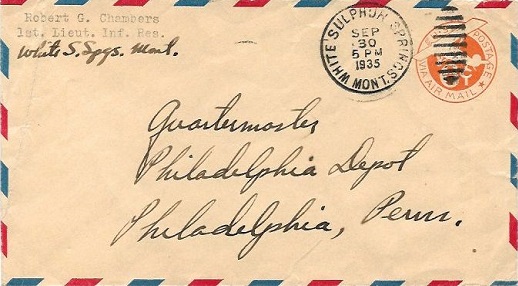 Robert G. Chambers
1st. Lieut. Inf. Res.
White S. Spgs. Mont.
WHITE SULPHUR SPRINGS
SEP
30
5 PM
1935
MONT.
POSTAGE
VIA AIR MAIL
Quartermaster
Philadelphia Depot
Philadelphia, Penn.